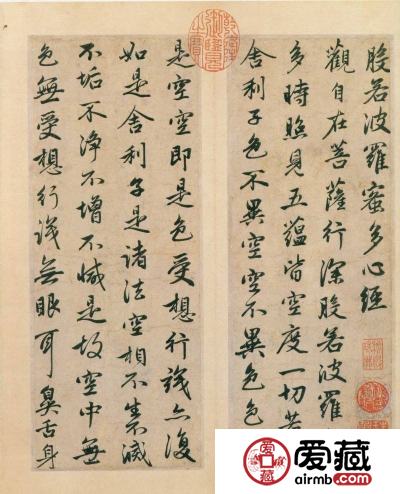 般若波羅蜜多心經
觀自在菩薩行深般若波羅
多時照見五蘊皆空度一切苦
舍利子色不異空空不異色色
是空空即是色受想行識亦復
如是舍利子是諸法空相不生不滅
不垢不淨不增不減是故空中無
色無受想行識無眼耳鼻舌身
爱藏
airmb.com